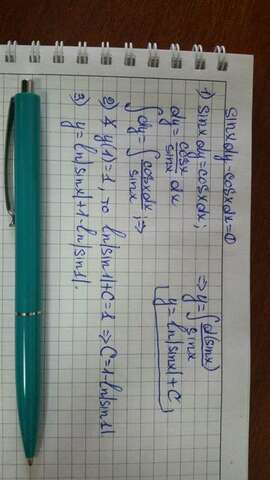 sinx dy - cosx dx = 0
1) sinx dy = cosx dx;
dy = cosx/sinx dx
∫dy = ∫ cosx dx/sinx; ⇒
⇒ y = ∫ d(sinx)/sinx
y = ln|sinx| + C
2) y(1) = 1, то ln|sin1| + C = 1 ⇒ C = 1 - ln|sin1|
3) y = ln|sinx| + 1 - ln|sin1|.